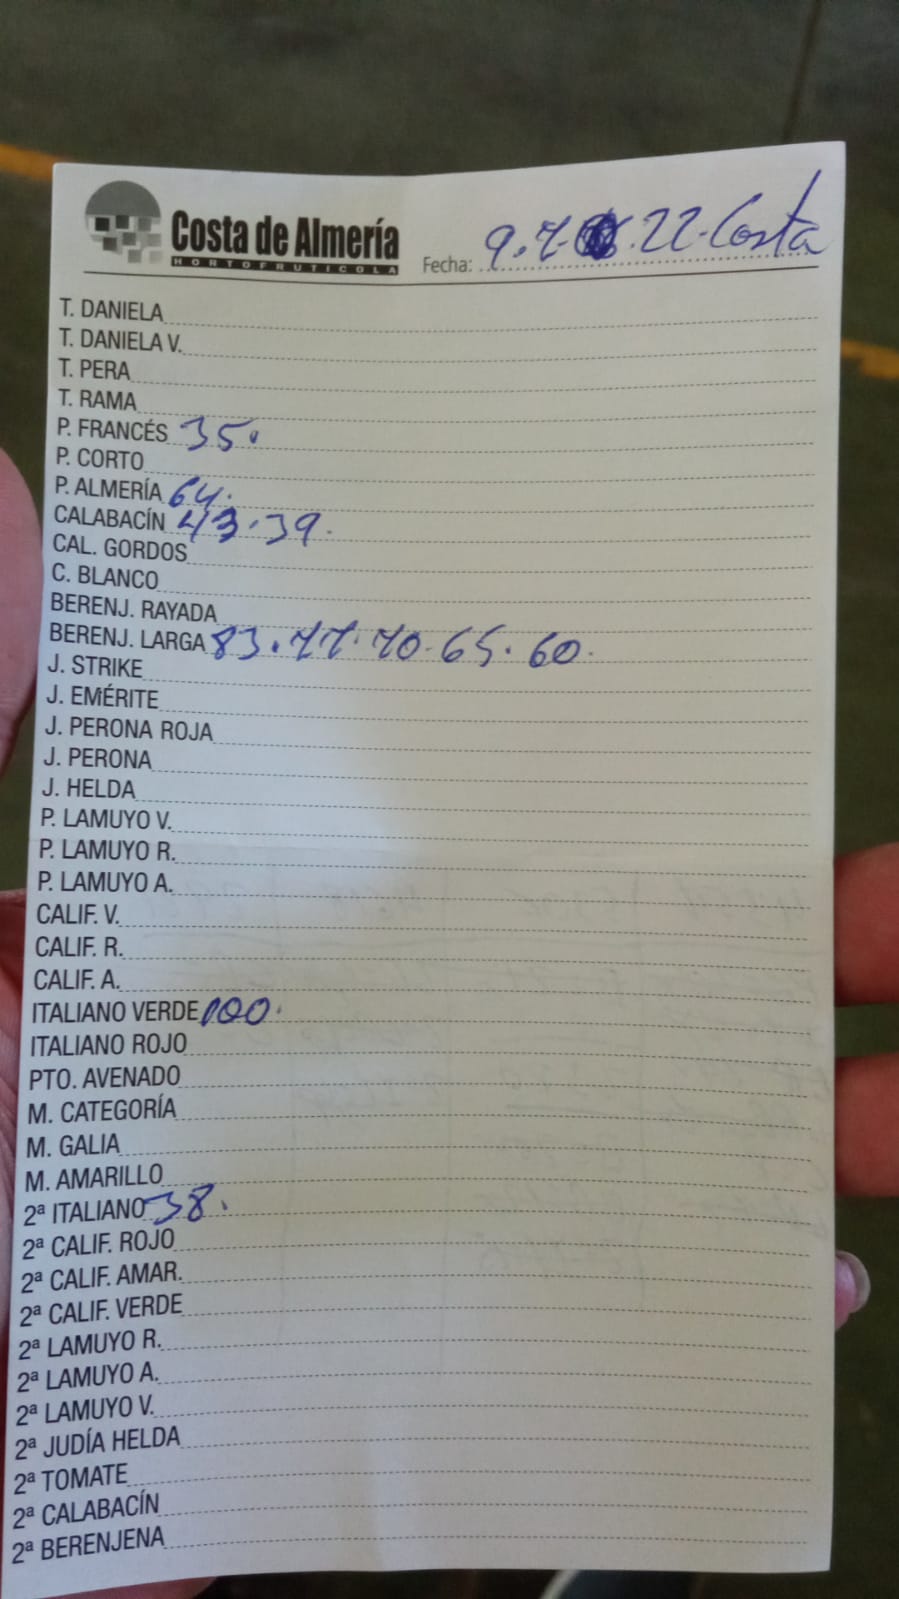 Costa de Almería
HORTOFRUTICOLA
Fecha: 9.7.22. Costa
T. DANIELA
T. DANIELA V.
T. PERA
T. RAMA
P. FRANCÉS 35.
P. CORTO
P. ALMERÍA 64.
CALABACÍN 43.39.
CAL. GORDOS
C. BLANCO
BERENJ. RAYADA
BERENJ. LARGA 83.77.70.65.60.
J. STRIKE
J. EMÉRITE
J. PERONA ROJA
J. PERONA
J. HELDA
P. LAMUYO V.
P. LAMUYO R.
P. LAMUYO A.
CALIF. V.
CALIF. R.
CALIF. A.
ITALIANO VERDE 100.
ITALIANO ROJO
PTO. AVENADO
M. CATEGORÍA
M. GALIA
M. AMARILLO
2ª ITALIANO 38.
2ª CALIF. ROJO
2ª CALIF. AMAR.
2ª CALIF. VERDE
2ª LAMUYO R.
2ª LAMUYO A.
2ª LAMUYO V.
2ª JUDÍA HELDA
2ª TOMATE
2ª CALABACÍN
2ª BERENJENA